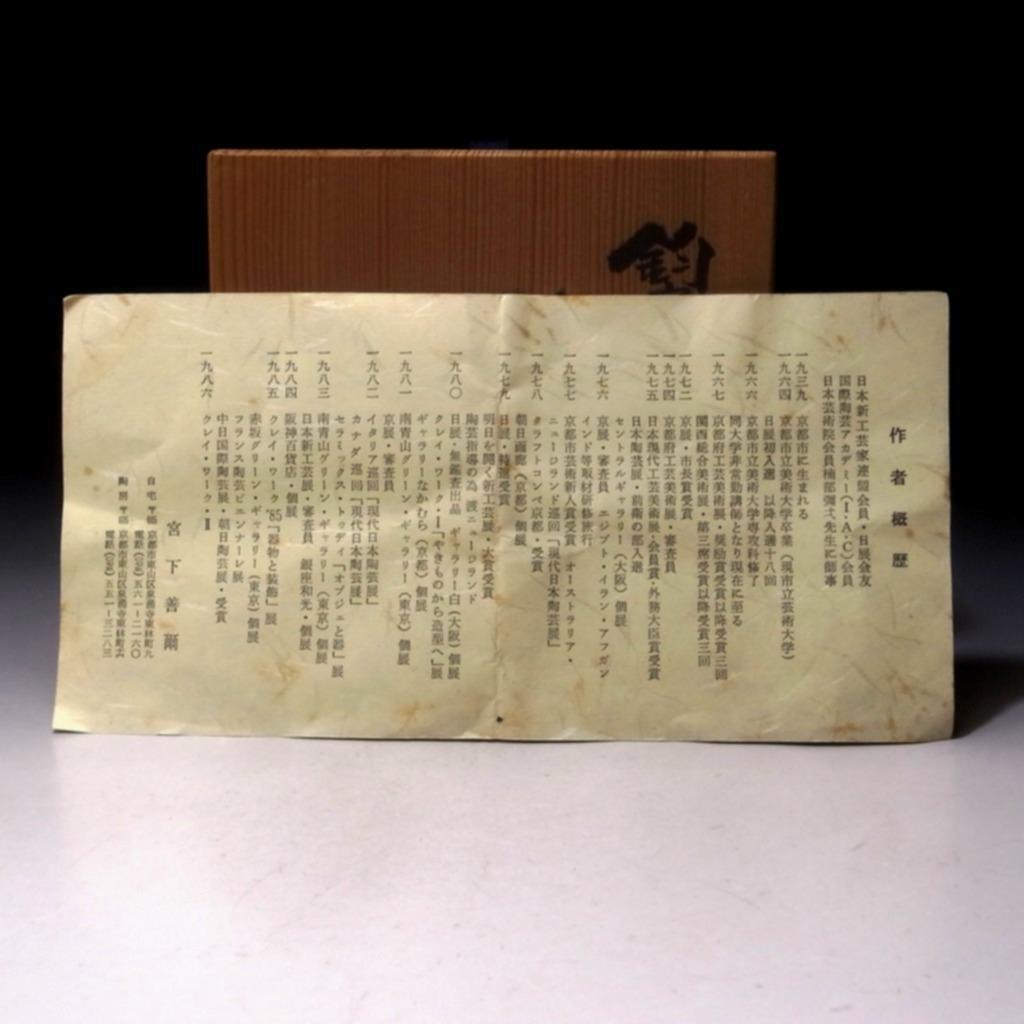 作者概歴
日本新工芸家連盟会員・日展会友
国際陶芸アカデミー(I・A・C)会員
日本芸術院会員楠部彌弌先生に師事
一九三九 京都市に生まれる
一九六四 京都市立美術大学卒業(現市立芸術大学)
日展初入選 以降入選十八回
一九六六 京都市立美術大学専攻科修了
同大学非常勤講師となり現在に至る
一九六七 京都府工芸美術展・奨励賞受賞以降受賞三回
関西総合美術展・第三席受賞以降受賞三回
一九七二 京展・市長賞受賞
一九七四 京都府工芸美術展・審査員
一九七五 日本現代工芸美術展・会員賞・外務大臣賞受賞
日本陶芸展・前衛の部入選
セントラルギャラリー(大阪)個展
一九七六 京展・審査員 エジプト・イラン・アフガン
インド等取材研修旅行
一九七七 京都市芸術新人賞受賞 オーストラリア・
ニュージランド巡回「現代日本陶芸展」
一九七八 クラフトコンペ京都・受賞
朝日画廊(京都)個展
一九七九 日展・特選受賞
明日を開く新工芸展・大賞受賞
陶芸指導の為 渡ニュージランド
一九八〇 日展・無鑑査出品 ギャラリー白(大阪)個展
クレイ・ワーク・Ⅰ「やきものから造型へ」展
ギャラリーなかむら(京都)個展
一九八一 南青山グリーン・ギャラリー(東京)個展
京展・審査員
一九八二 イタリア巡回「現代日本陶芸展」
カナダ巡回「現代日本陶芸展」
セラミックス・トゥディ「オブジェと器」展
一九八三 南青山グリーン・ギャラリー(東京)個展
日本新工芸展・審査員 銀座和光・個展
一九八四 阪神百貨店・個展
一九八五 クレイ・ワーク'85「器物と装飾」展
赤坂グリーン・ギャラリー(東京)個展
フランス陶芸ビエンナーレ展
中日国際陶芸展・朝日陶芸展・受賞
一九八六 クレイ・ワーク・Ⅱ
宮下善爾
自宅 〒 京都市東山区泉涌寺東林町九
電話 五六一-二一六〇
陶房 〒 京都市東山区泉涌寺東林町
電話 五五一-三二八三